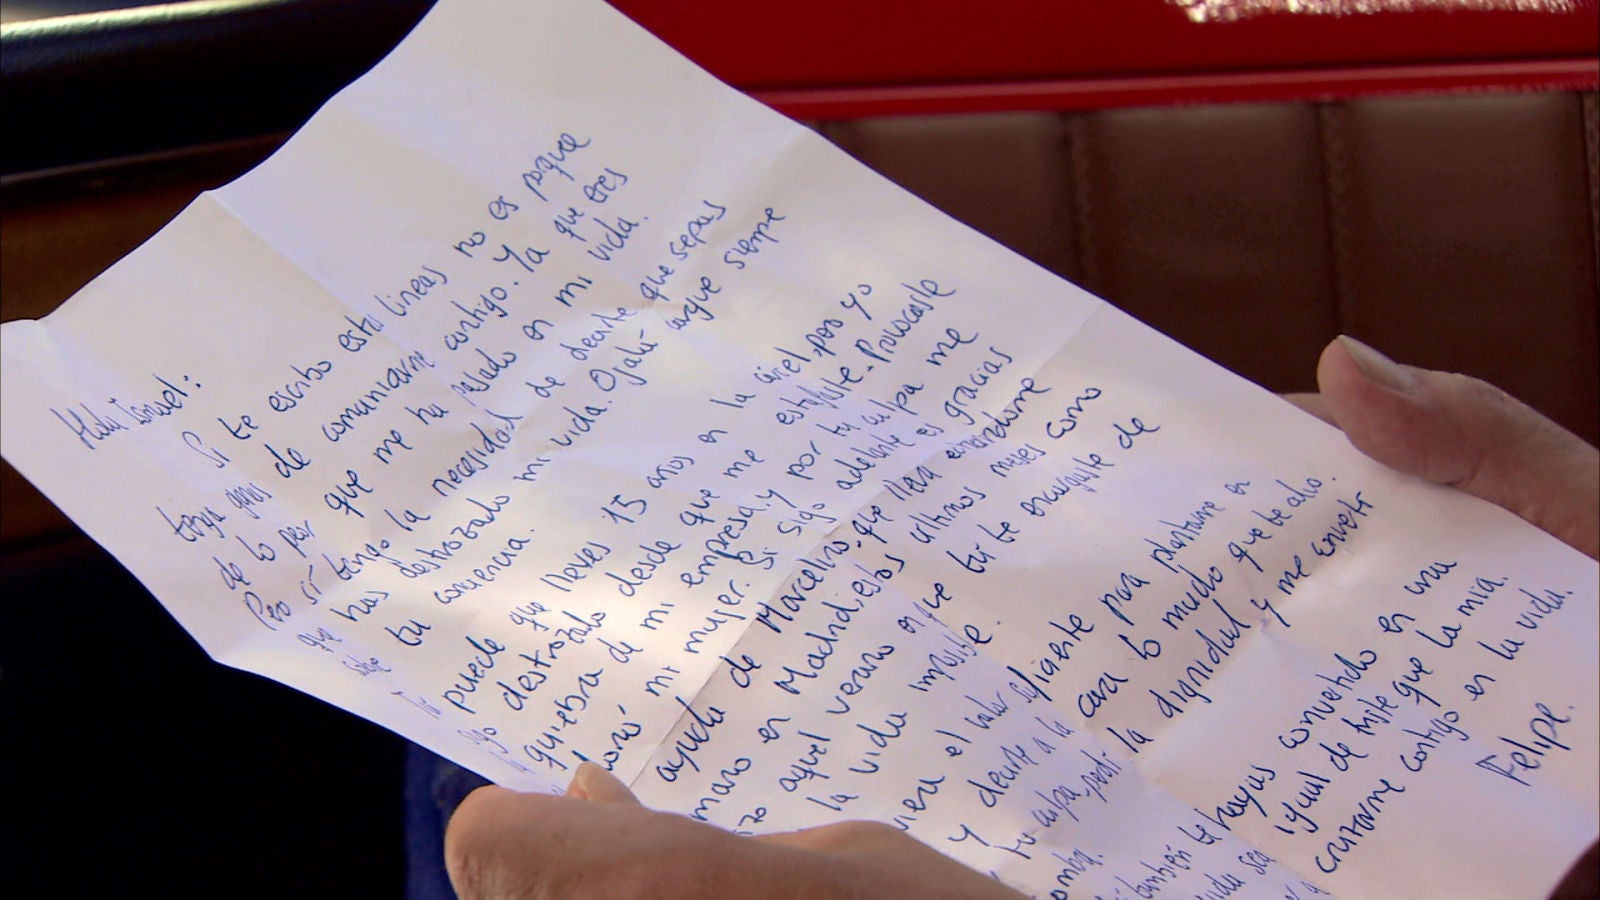 Hola Ismael:
Si te escribo esta lineas no es porque
tenga ganas de comunicarme contigo. Ya que eres
de lo peor que me ha pasado en mi vida.
Pero sí tengo la necesidad de decirte que sepas
que has destrozado mi vida. Ojalá cargue siempre
sobre tu conciencia.
puede que lleves 15 años en la cárcel, pero yo
sigo destrozado desde que me estafaste. Provocaste
la quiebra de mi empresa, y por tu culpa me
mi mujer. Si sigo adelante es gracias
ayuda de Marcelino, que lleva
en Madrid, estos últimos meses como
aquel verano en que tú te encargaste de
la vida imposible.
el valor suficiente para plantarme en
y decirte a la cara lo mucho que te odio.
tu culpa, perdí la dignidad y me convertí
también te hayas convertido en una
vida sea igual de triste que la mía.
cruzarme contigo en la vida.
Felipe.